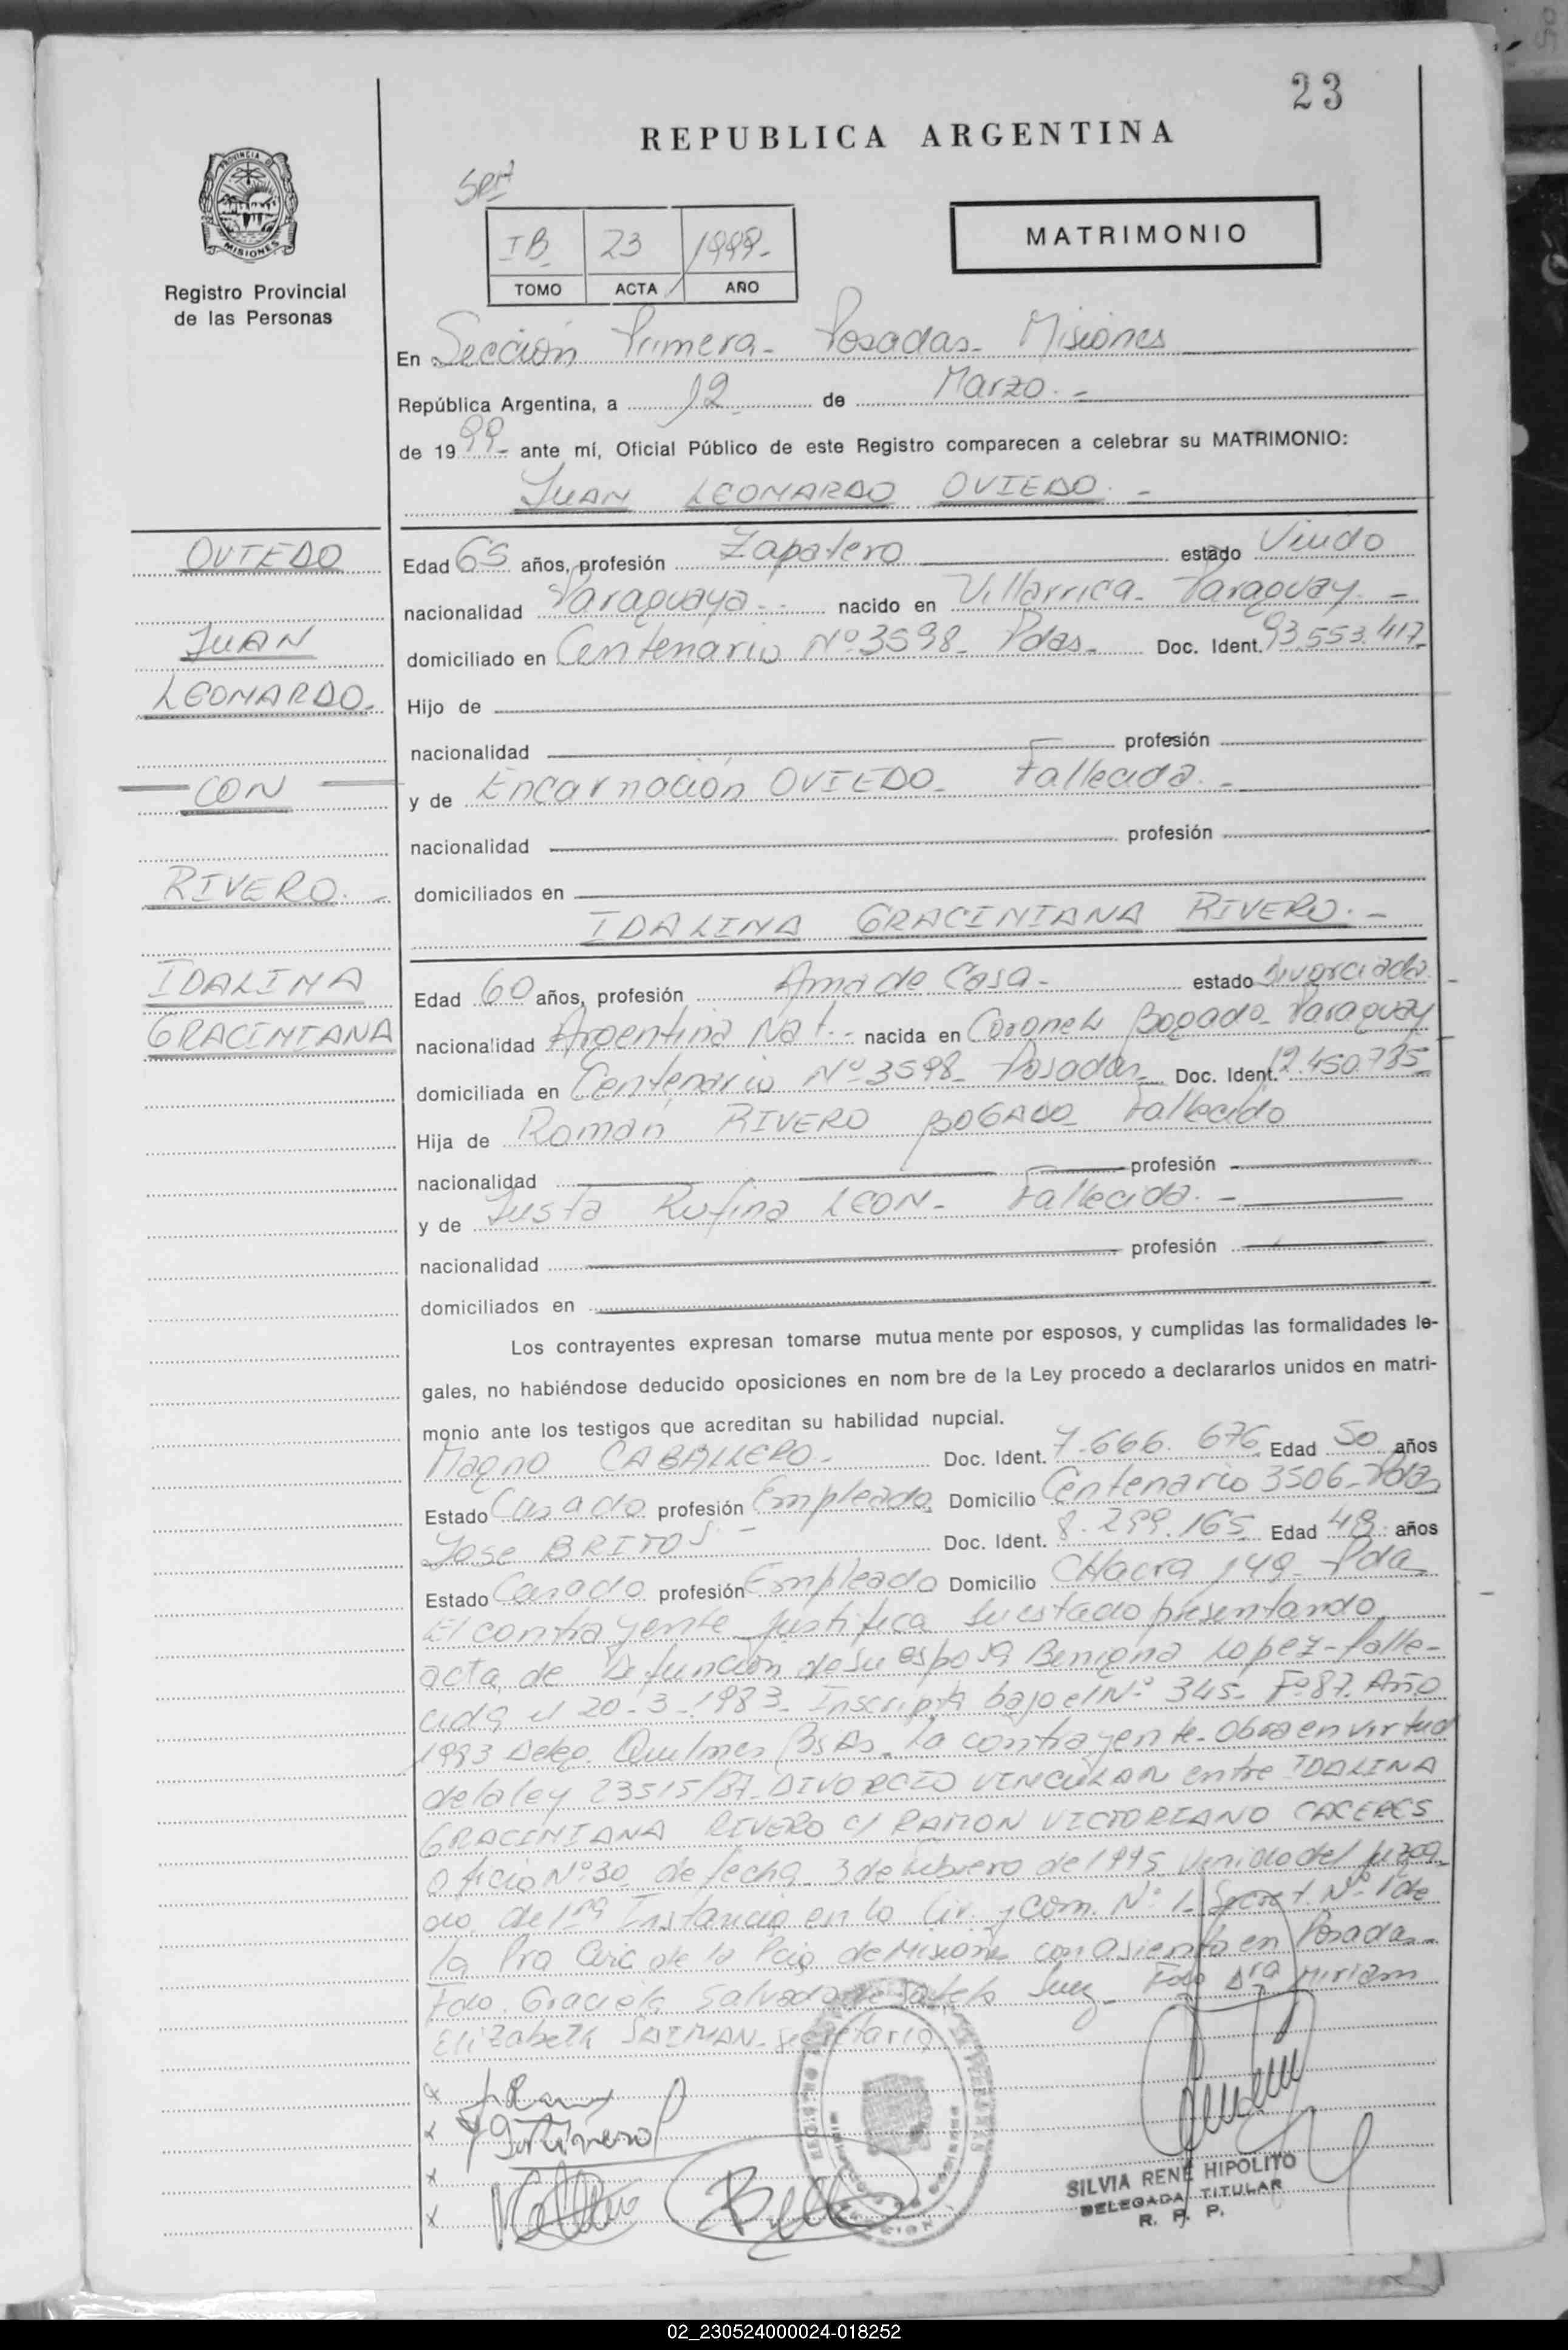 23
REPUBLICA ARGENTINA
PROVINCIA DE
MISIONES
Registro Provincial
de las Personas
IB 23 1999-
TOMO ACTA AÑO
MATRIMONIO
En Sección Primera- Posadas- Misiones
República Argentina, a 12 de Marzo.-
de 1999- ante mí, Oficial Público de este Registro comparecen a celebrar su MATRIMONIO:
JUAN LEONARDO OVIEDO.-
OVIEDO
JUAN
LEONARDO-
CON
RIVERO.-
IDALINA
GRACINIANA
Edad 65 años, profesión Zapatero estado Viudo
nacionalidad Paraguaya-- nacido en Villarrica- Paraguay.-
domiciliado en Centenario Nº 3598- Pdas- Doc. Ident. 93.553.417-
Hijo de
nacionalidad profesión
y de Encarnación OVIEDO- Fallecida.-
nacionalidad profesión
domiciliados en
IDALINA GRACINIANA RIVERO.-
Edad 60 años, profesión Ama de Casa- estado divorciada.
nacionalidad Argentina Nat.- nacida en Coronel Bogado- Paraguay
domiciliada en Centenario Nº 3598- Posadas- Doc. Ident. 12.450.735-
Hija de Roman RIVERO BOGADO Fallecido
nacionalidad profesión
y de Justa Rufina LEON- Fallecida.-
nacionalidad profesión
domiciliados en
Los contrayentes expresan tomarse mutua mente por esposos, y cumplidas las formalidades le-
gales, no habiéndose deducido oposiciones en nom bre de la Ley procedo a declararlos unidos en matri-
monio ante los testigos que acreditan su habilidad nupcial.
Magno CABALLERO- Doc. Ident. 7.666.676 Edad 50 años
Estado Casado profesión Empleado Domicilio Centenario 3506- Pdas
Jose BRITOS.- Doc. Ident. 8.299.165 Edad 48 años
Estado Casado profesión Empleado Domicilio CHacra 149- Pdas
El contrayente justifica su estado presentando
acta de Defunción de su esposa Benigna Lopez- Falle-
cida el 20-3-1983- Inscripta bajo el Nº 345- Fº 87. Año
1993 Deleg. Quilmes Bs As- La contrayente- Obra en virtud
de la ley 23515/87- DIVORCIO VINCULAR entre IDALINA
GRACINIANA RIVERO c/ RAMON VICTORIANO CACERES
Oficio Nº 30 de fecha 3 de febrero de 1995 venido del juzga-
do de 1ra Instancia en lo Civ. y Com. Nº 1- Secret. Nº 1 de
la Pra Circ de la Pcia de Misiones con asiento en Posadas-
Fdo. Graciela Juez- Fdo Dra Miriam
Elizabeth Secretaria
SILVIA RENE HIPOLITO
DELEGADA TITULAR
R. P. P.
02_230524000024-018252